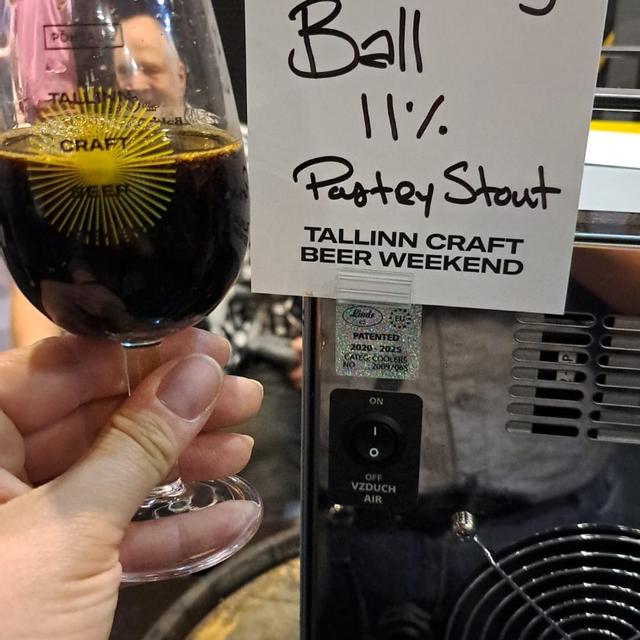 PÕHJALA
TALLINN
CRAFT
BEER
Ball
11%
Pastey Stout
TALLINN CRAFT
BEER WEEKEND
Lindr
PATENTED
2020 - 2025
CATEG. COOLERS
NO 2009/065
ON
I
O
OFF
VZDUCH
AIR